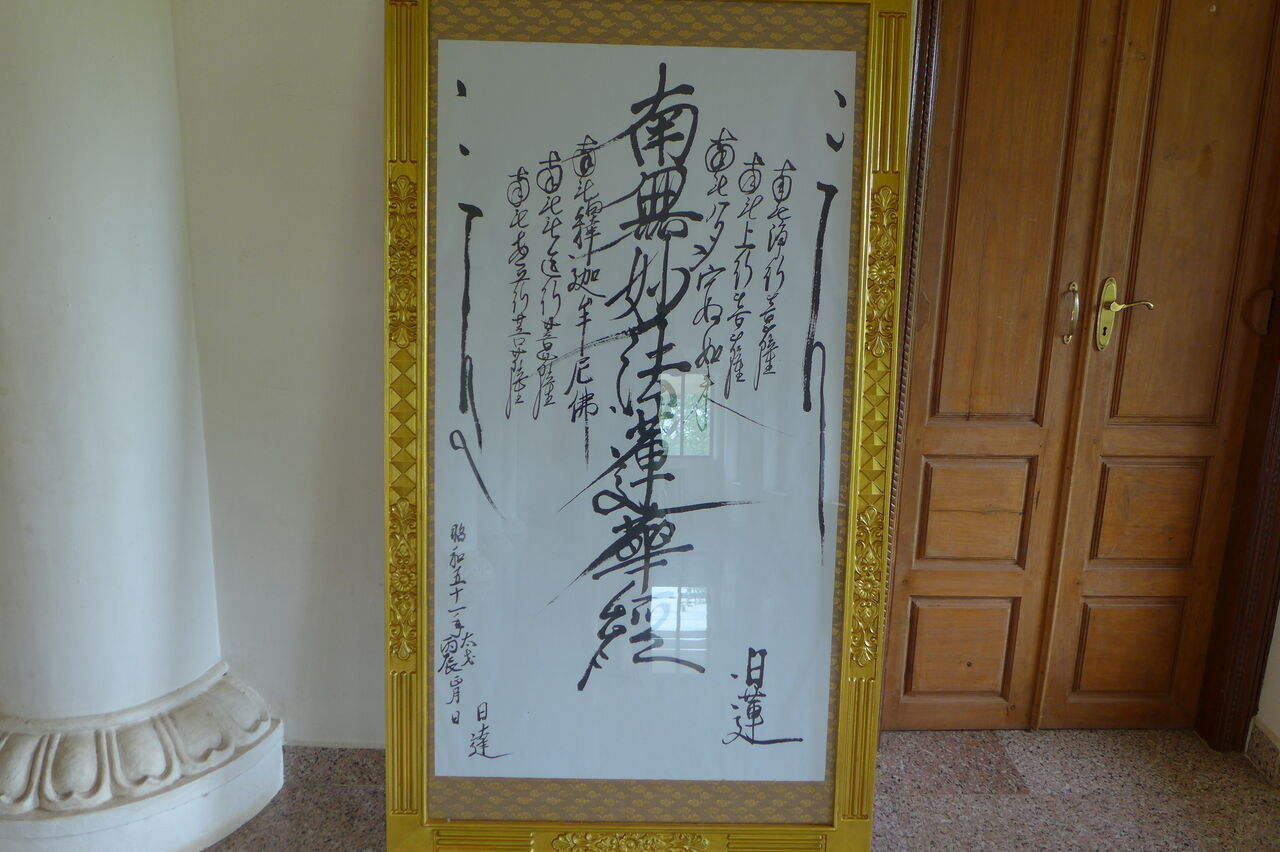 南無淨行菩薩
南無上行菩薩
南無多宝如来
南無妙法蓮華經
日蓮
南無釋迦牟尼佛
南無無邊行菩薩
南無安立行菩薩
昭和五十一年太才丙辰正月 日
日達